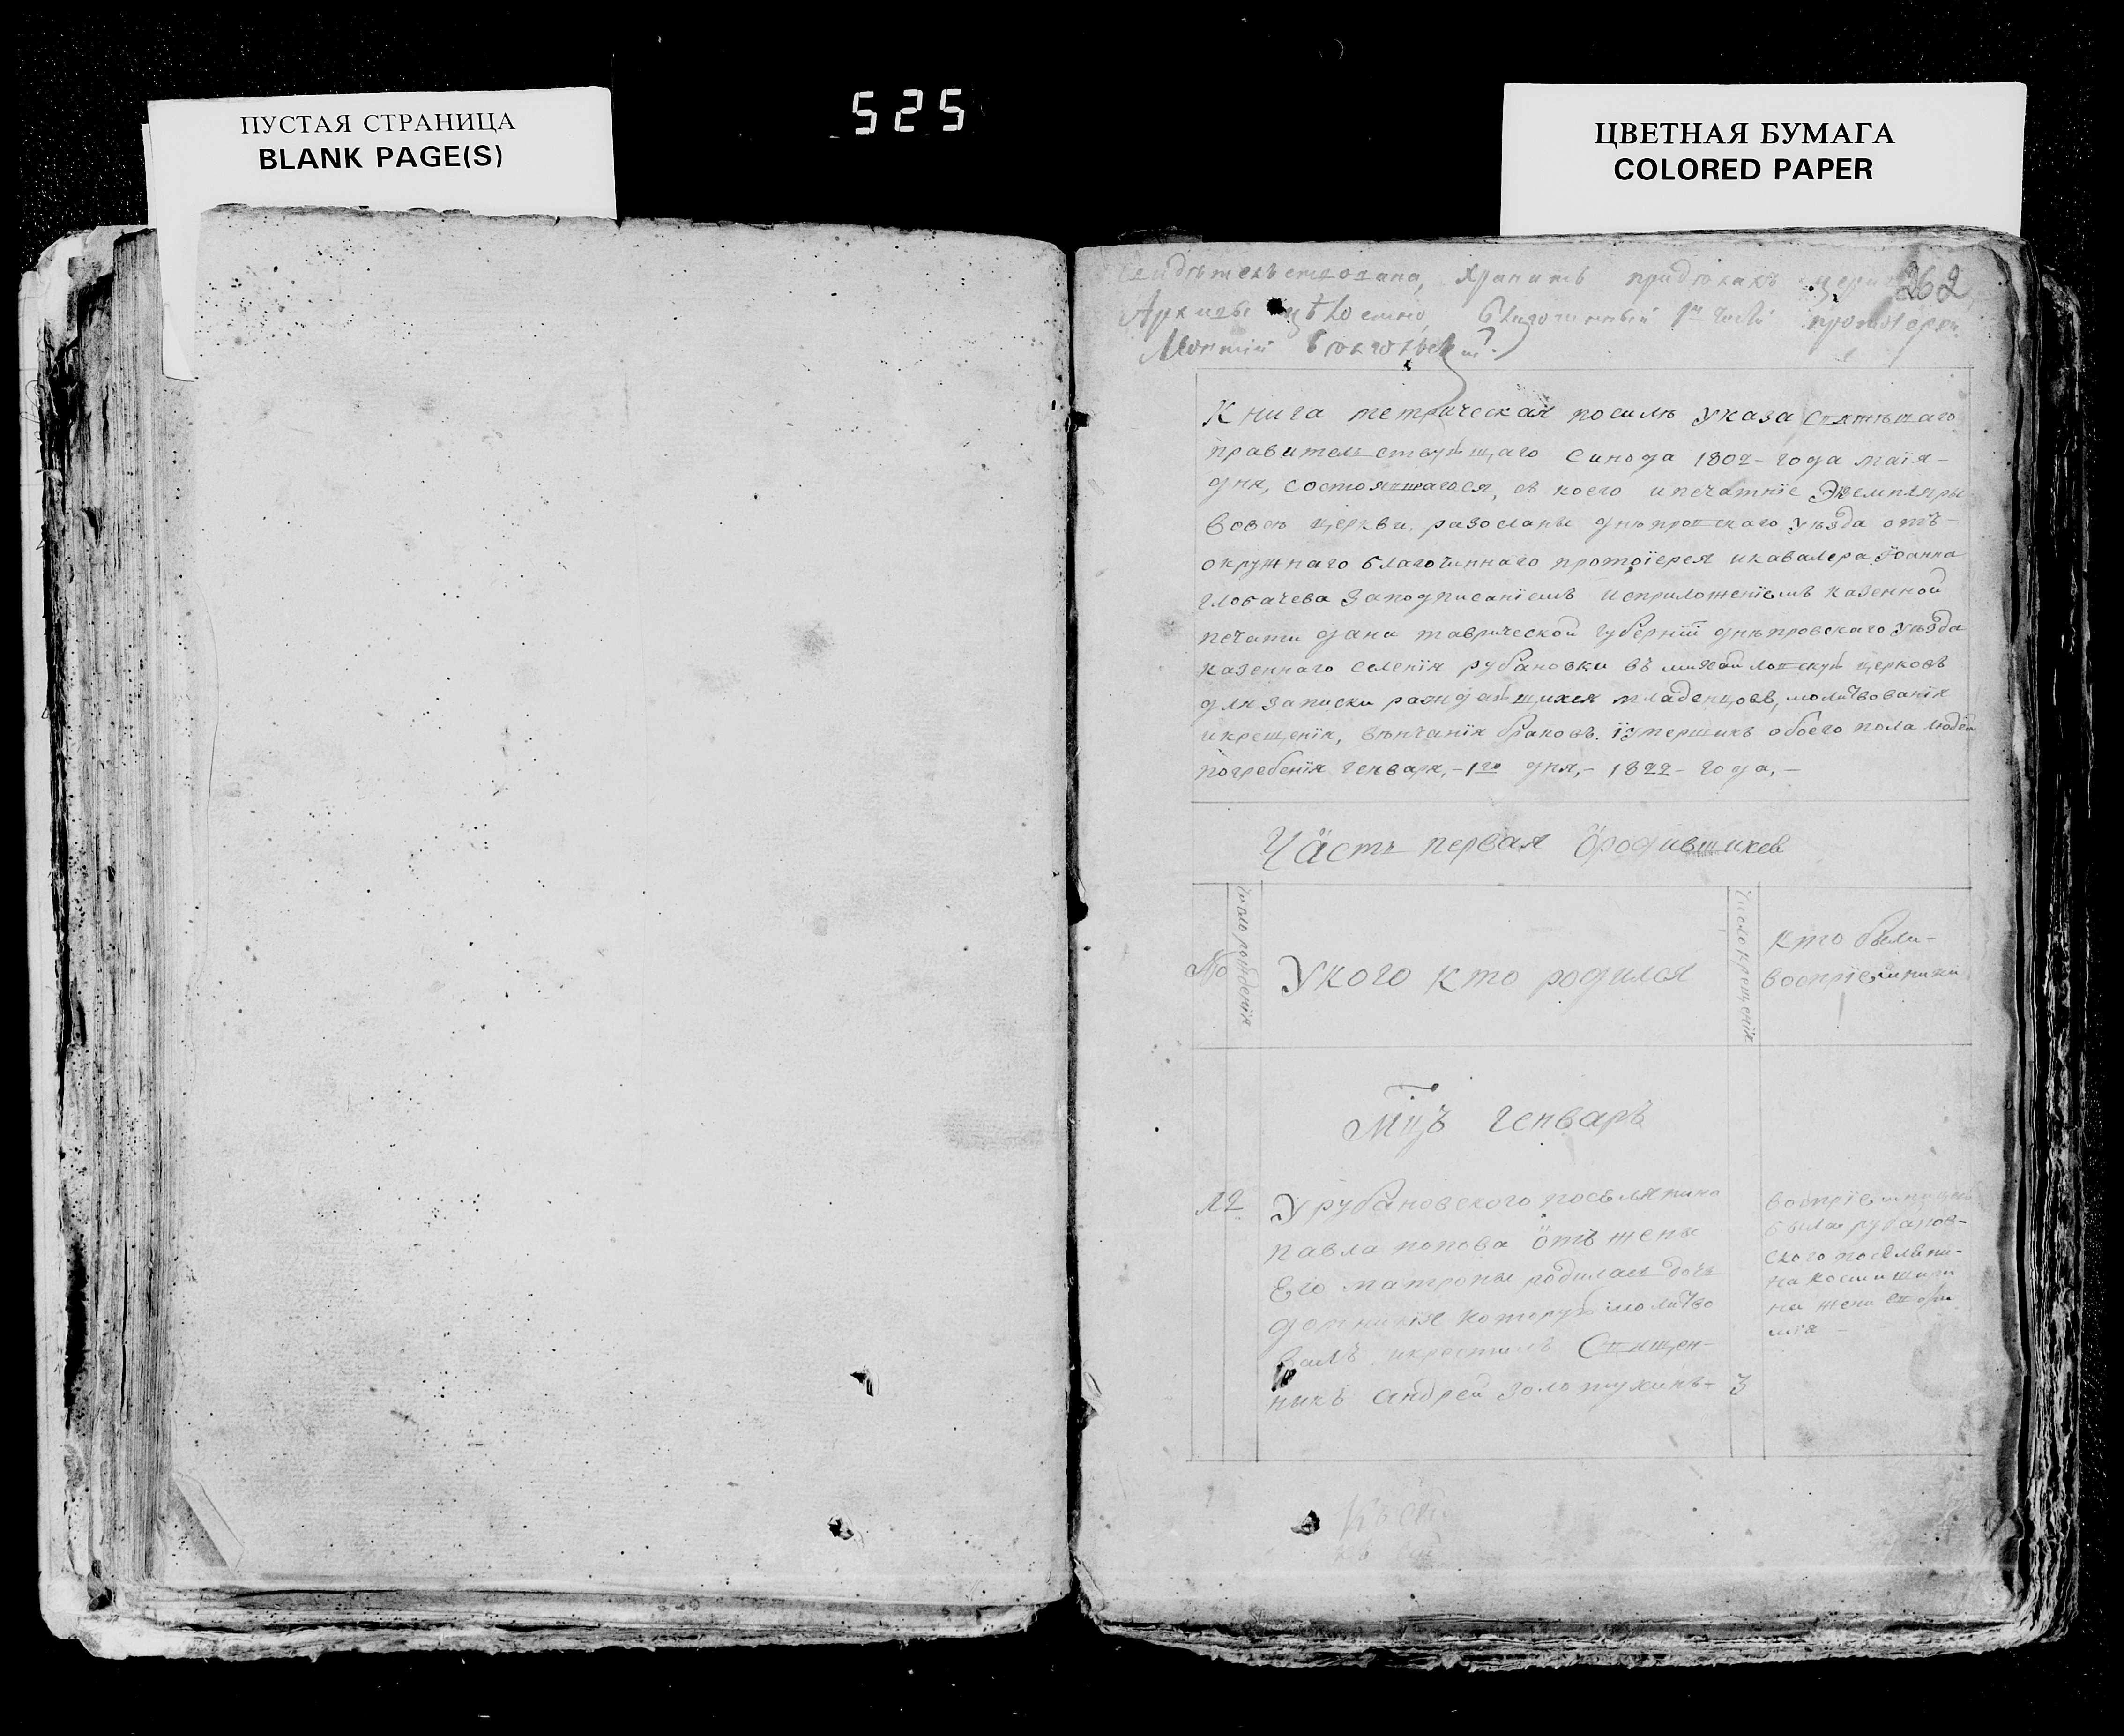 ПУСТАЯ СТРАНИЦА
BLANK PAGE(S)
525
ЦВЕТНАЯ БУМАГА
COLORED PAPER
262
Книга метрическая посилѣ указа Святѣшаго
правительствующаго Синода 1802 – года маія –
дня, состоявшагося, въ коего ипечатніе Экземпляры
вовсѣ церкви, разосланы днѣпровскаго уѣзда отъ –
окружнаго благочиннаго протоіерея икавалера Іоанна
заподписаніемъ исприложеніемъ казенной
печати дана таврической губерніи днѣпровскаго уѣзда
казеннаго селенія рубановки въ михайловскую церковь
для записки раждающихся младенцовъ, молитвованія
икрещенія, вѣнчанія браковъ. іумершихъ обоего пола людей
погребенія генваря, – 1го дня, – 1822 – года, –
Часть первая ородившихся
№
Число рожденія
Укого кто родился
Число крещенія
кто были –
воспріемники
Мцъ генварь
12
У рубановского поселянина
павла попова отъ жены
Его матроны родилась дочь
домникія которую молитво
валъ икрестилъ Священ–
никъ андрей золотухинъ –
3
воспріемницею
была рубанов–
ского поселяни–
на
на жена